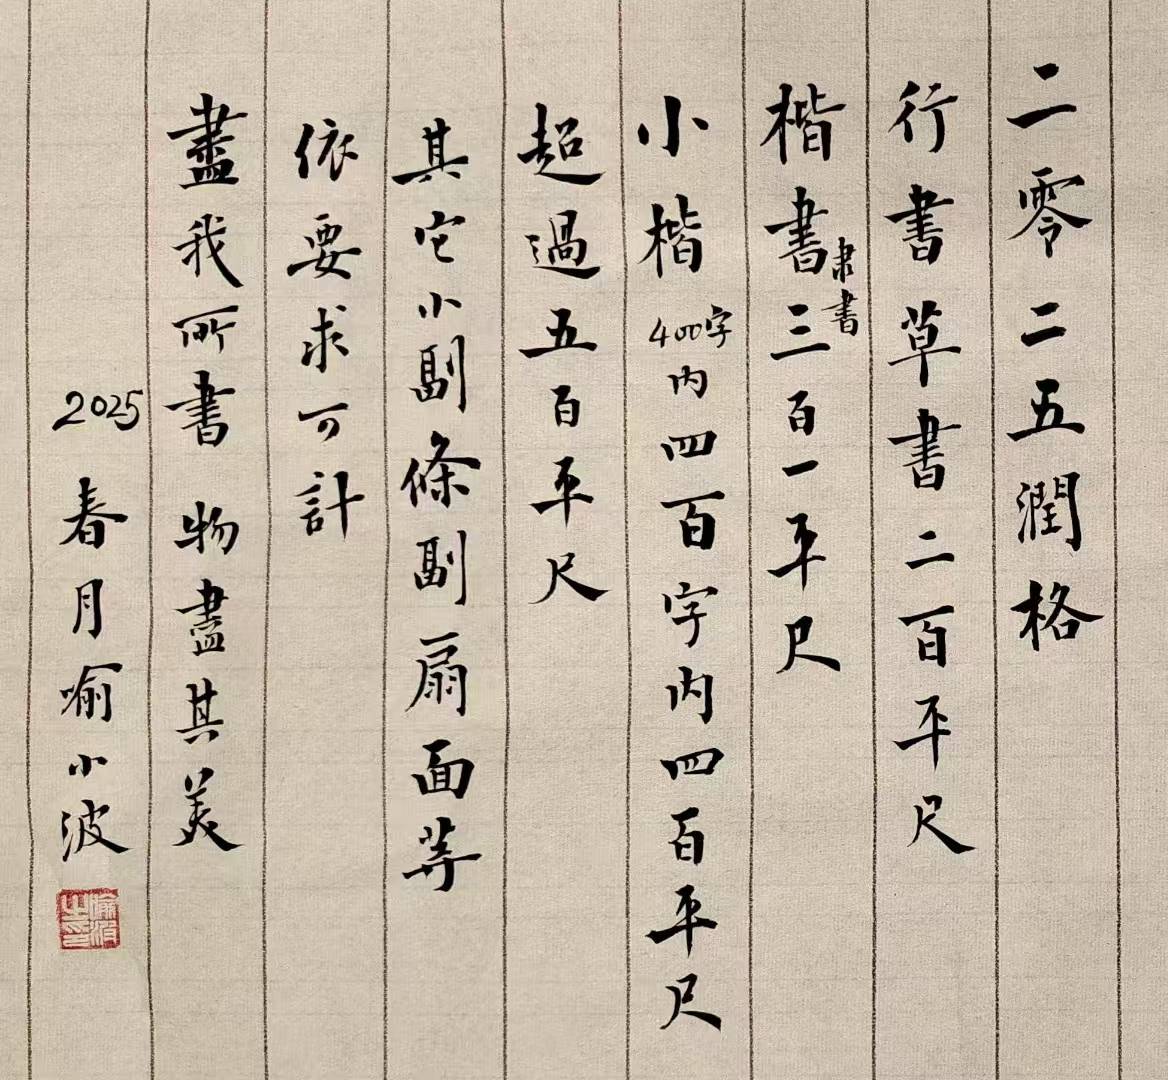 二零二五潤格
行書草書二百平尺
楷書隶書三百一平尺
小楷400字内四百字内四百平尺
超過五百平尺
其它小副條副扇面等
依要求可計
盡我所書 物盡其美
2025 春月喻小波
喻波之印